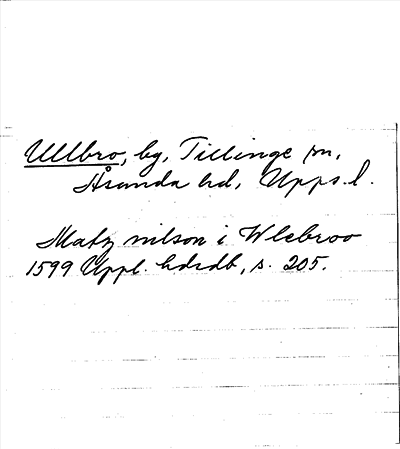 Ullbro, by, Tillinge sn,
Åsunda hd, Upps. l.
Matz nilson i Wlebroo
1599 Uppl. hdrdb, s. 205.